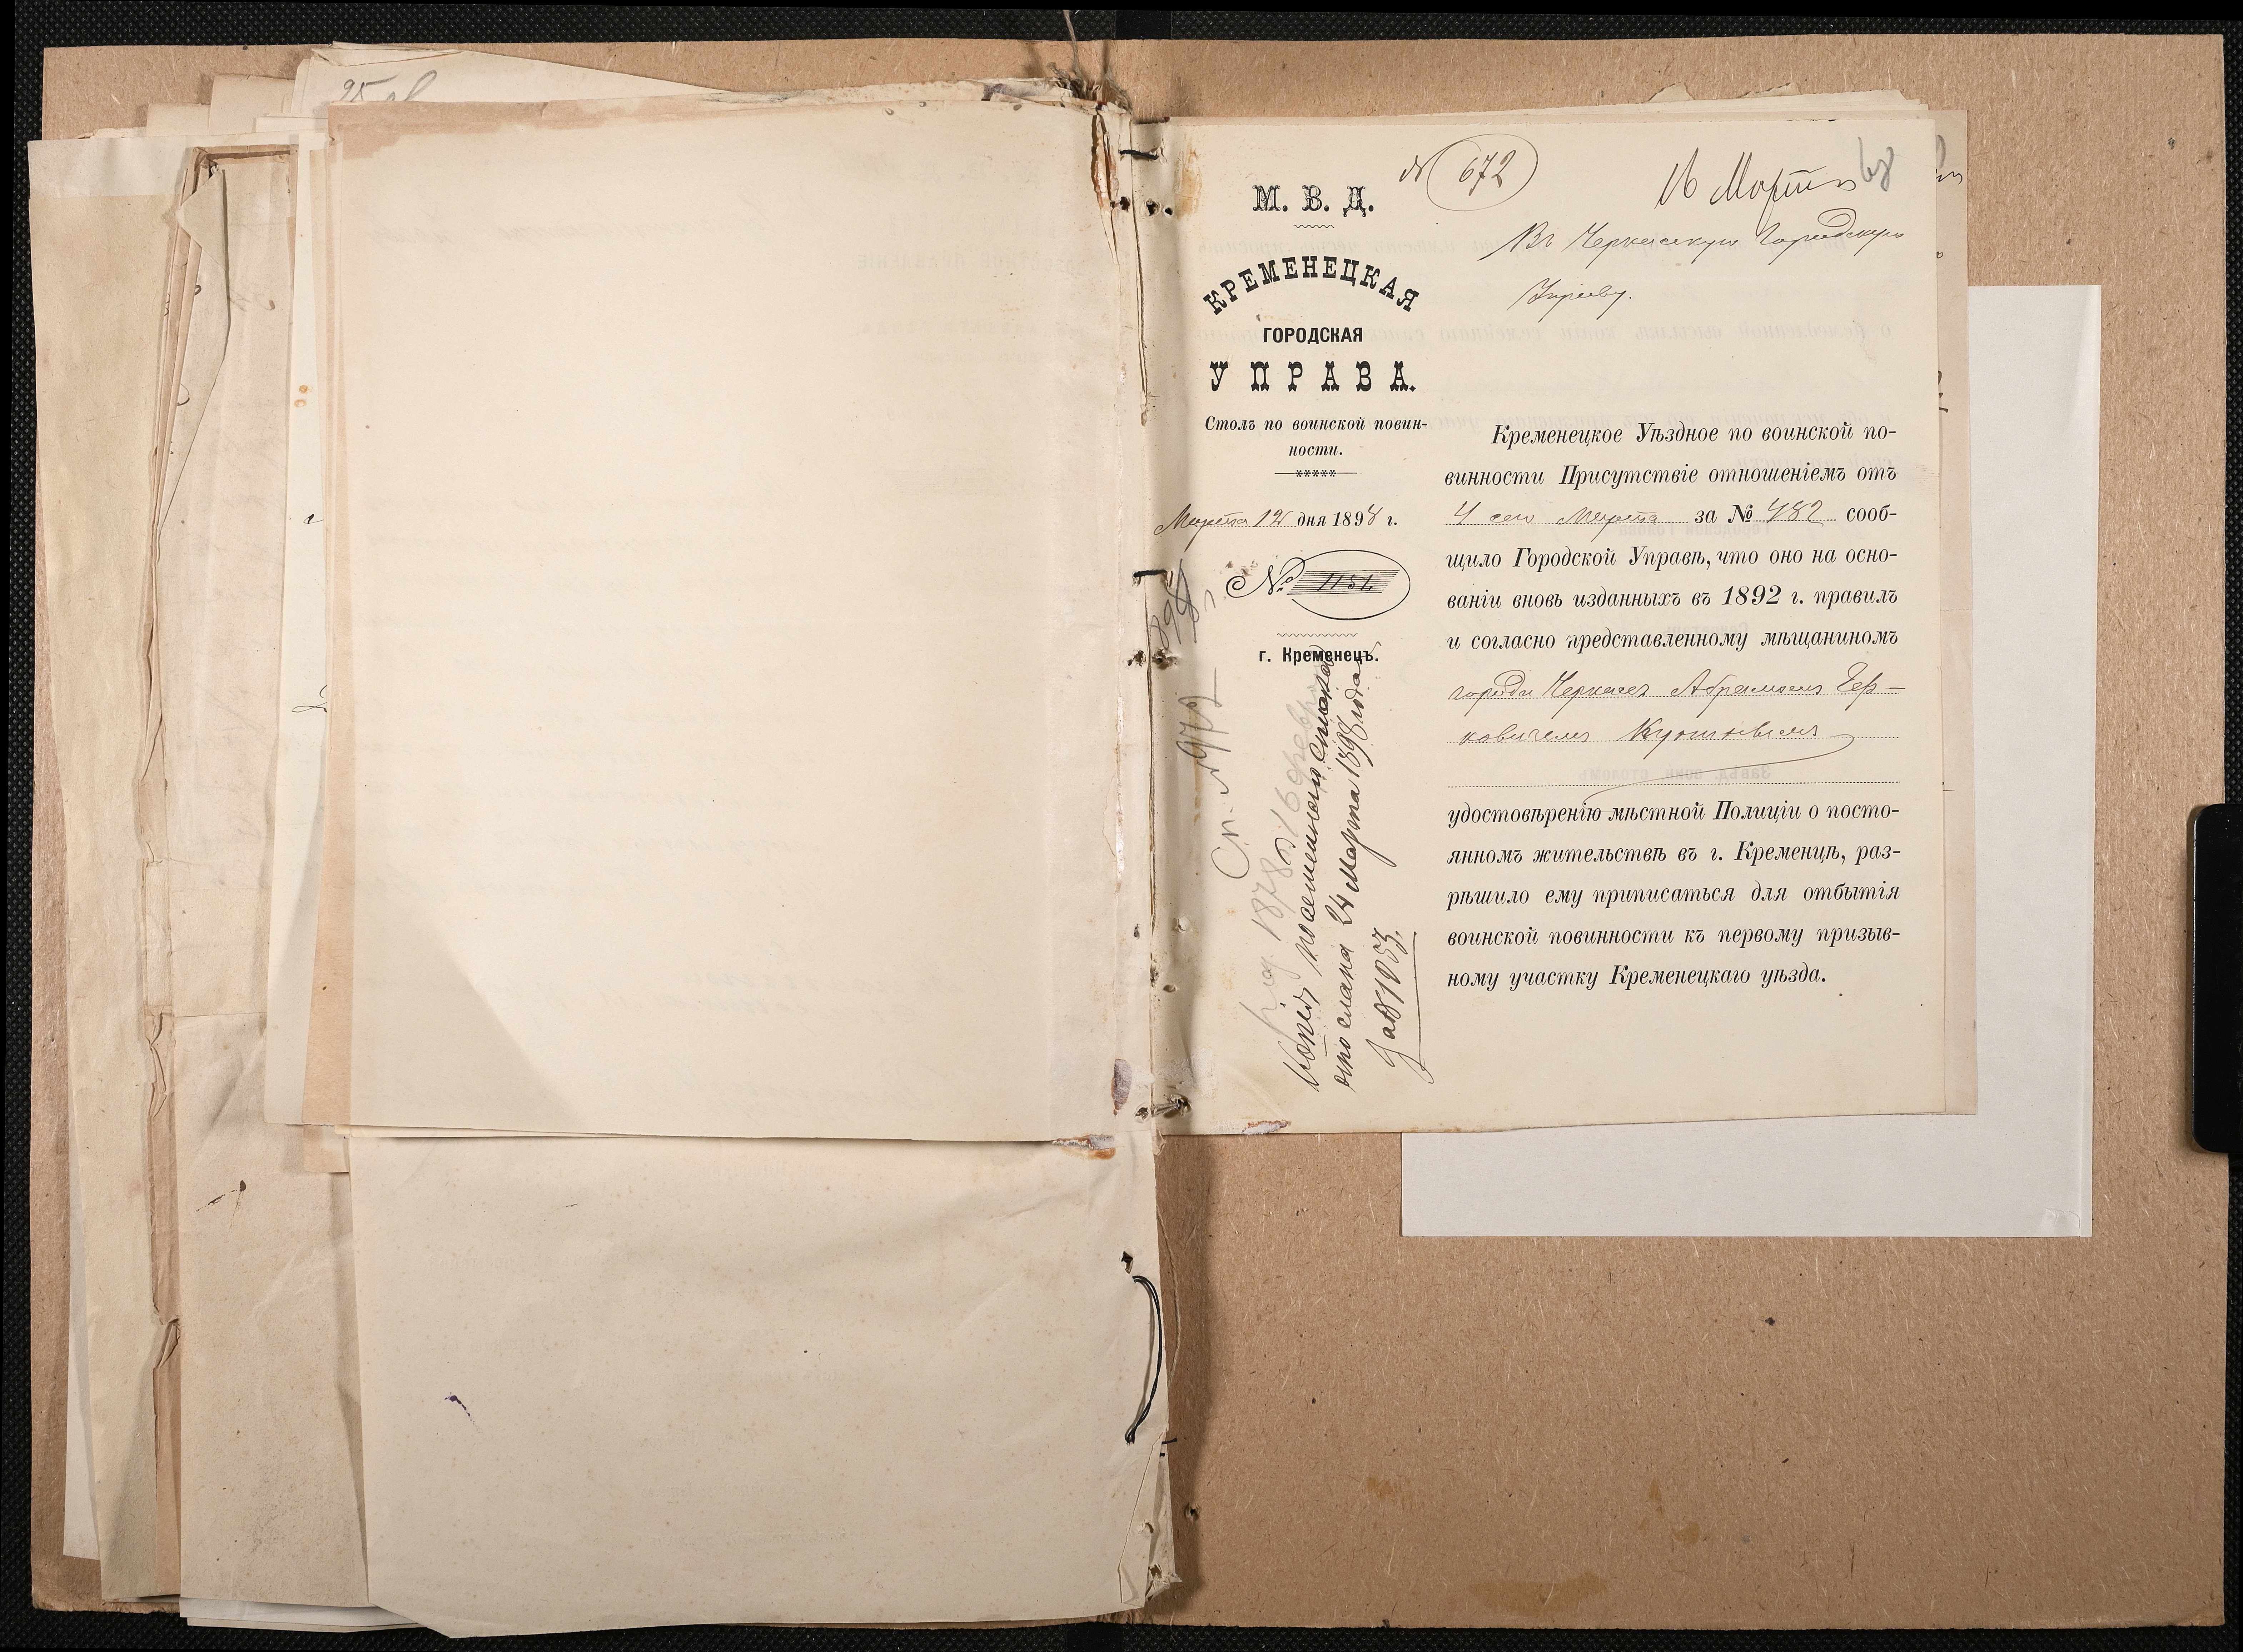 25 об
№ 672
16 Марта
М. В. Д.
КРЕМЕНЕЦКАЯ
ГОРОДСКАЯ
УПРАВА.
Столъ по воинской повин-
ности.
Марта 12 дня 1898 г.
№ 1151
г. Кременецъ.
Въ Черкасскую Городскую
Управу.
Кременецкое Уѣздное по воинской по-
винности Присутствіе отношеніемъ отъ
4 сего Марта за № 482 сооб-
щило Городской Управѣ, что оно на осно-
ваніи вновь изданныхъ въ 1892 г. правилъ
и согласно представленному мѣщаниномъ
города Черкасъ Абрамомъ Гер-
ковичемъ
удостовѣренію мѣстной Полиціи о посто-
янномъ жительствѣ въ г. Кременцѣ, раз-
рѣшило ему приписаться для отбытія
воинской повинности къ первому призыв-
ному участку Кременецкаго уѣзда.
1898 г.
Сп. № 972
1878
Копія посемейнаго списка
отослана 24 Марта 1898 года
за № 1053.